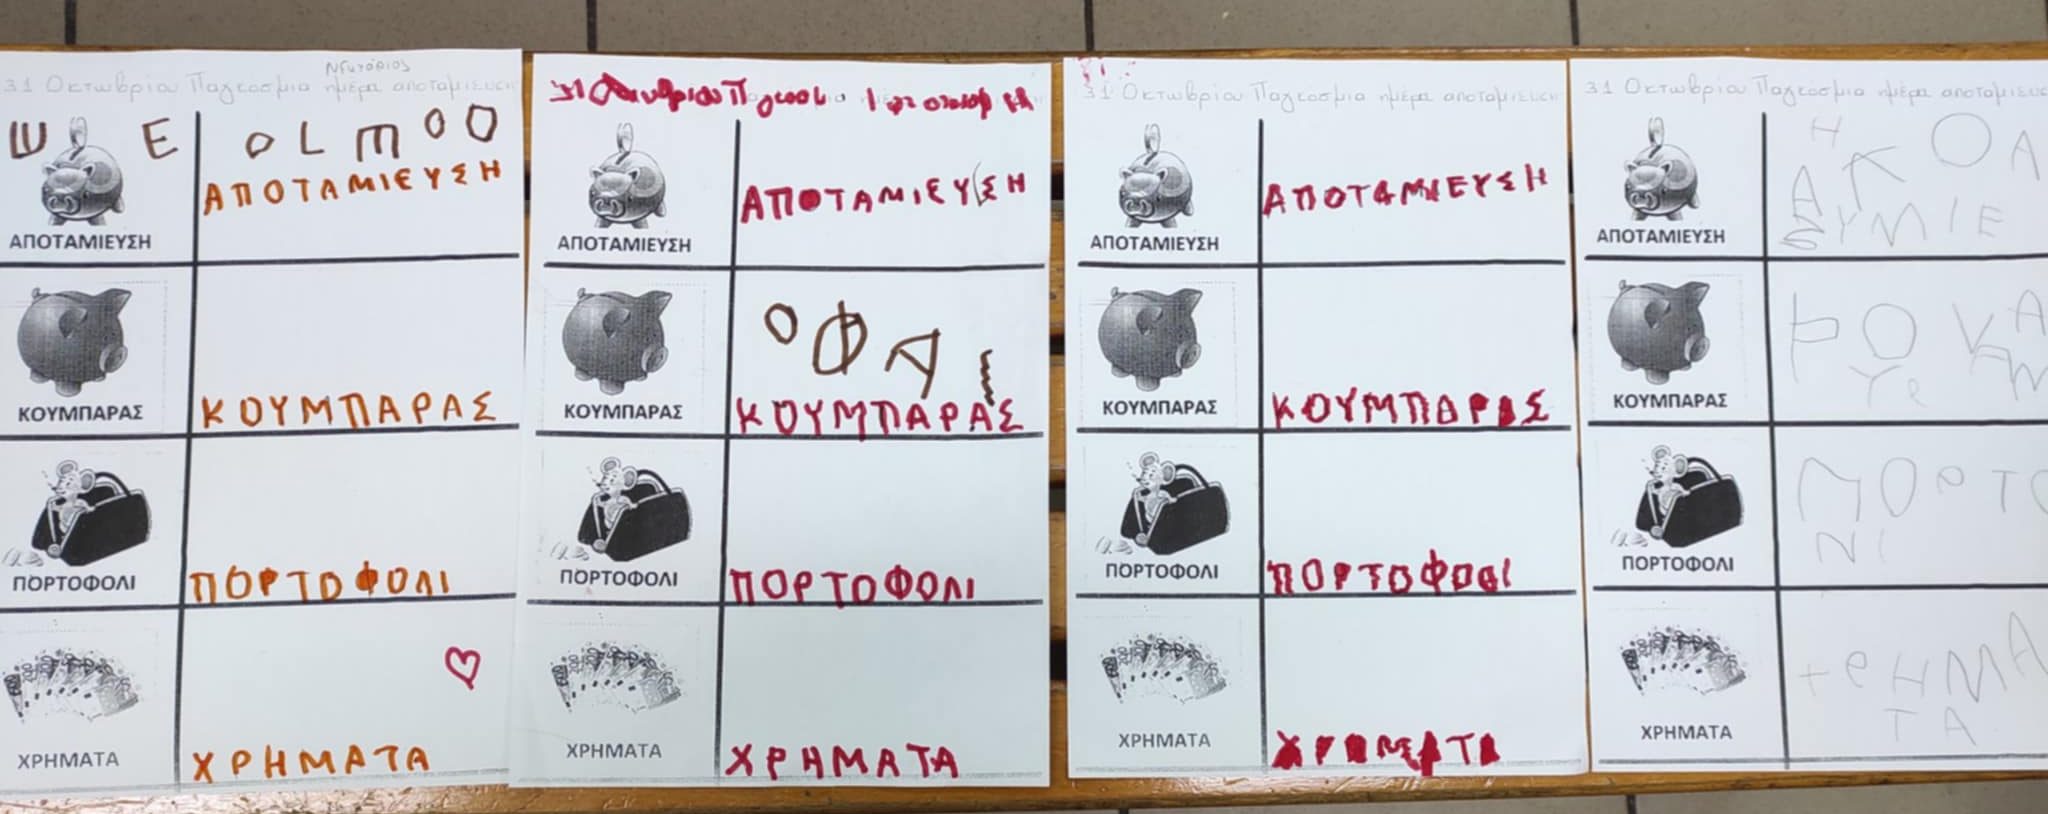 Νηπιαγωγείο
31 Οκτωβρίου Παγκόσμια ημέρα αποταμίευση
Ш Ε Ο L m Ο Ο
ΑΠΟΤΑΜΙΕΥΣΗ
ΑΠΟΤΑΜΙΕΥΣΗ
ΚΟΥΜΠΑΡΑΣ
ΚΟΥΜΠΑΡΑΣ
ΠΟΡΤΟΦΟΛΙ
ΠΟΡΤΟΦΟΛΙ
ΧΡΗΜΑΤΑ
ΧΡΗΜΑΤΑ
31 Οκτωβρίου
ΑΠΟΤΑΜΙΕΥΣΗ
ΑΠΟΤΑΜΙΕΥΣΗ
Ο Φ Α
ΚΟΥΜΠΑΡΑΣ
ΚΟΥΜΠΑΡΑΣ
ΠΟΡΤΟΦΟΛΙ
ΠΟΡΤΟΦΟΛΙ
ΧΡΗΜΑΤΑ
ΧΡΗΜΑΤΑ
31 Οκτωβρίου Παγκοσμια ημέρα αποταμίευση
ΑΠΟΤΑΜΙΕΥΣΗ
ΑΠΟΤΑΜΙΕΥΣΗ
ΚΟΥΜΠΑΡΑΣ
ΚΟΥΜΠΑΡΑΣ
ΠΟΡΤΟΦΟΛΙ
ΠΟΡΤΟΦΟΛΙ
ΧΡΗΜΑΤΑ
ΧΡΗΜΑΤΑ
31 Οκτωβρίου Παγκοσμια ημέρα αποταμιευσ
Η
Α Κ Ο Α
Σ Υ Μ Ι Ε
ΑΠΟΤΑΜΙΕΥΣΗ
ΚΟΥΜΠΑΡΑΣ
ΠΟΡΤΟ
ΛΙ
ΠΟΡΤΟΦΟΛΙ
+ΡΗΜΑ
ΤΑ
ΧΡΗΜΑΤΑ